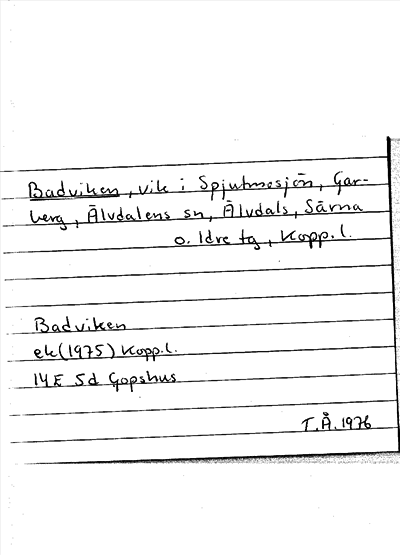 Badviken, vik i Spjutmosjön, Gar-
berg, Älvdalens sn, Älvdals, Särna
o. Idre tg, Kopp.l.
Badviken
ek(1975) Kopp.l.
14E 5d Gopshus
T.Å. 1976